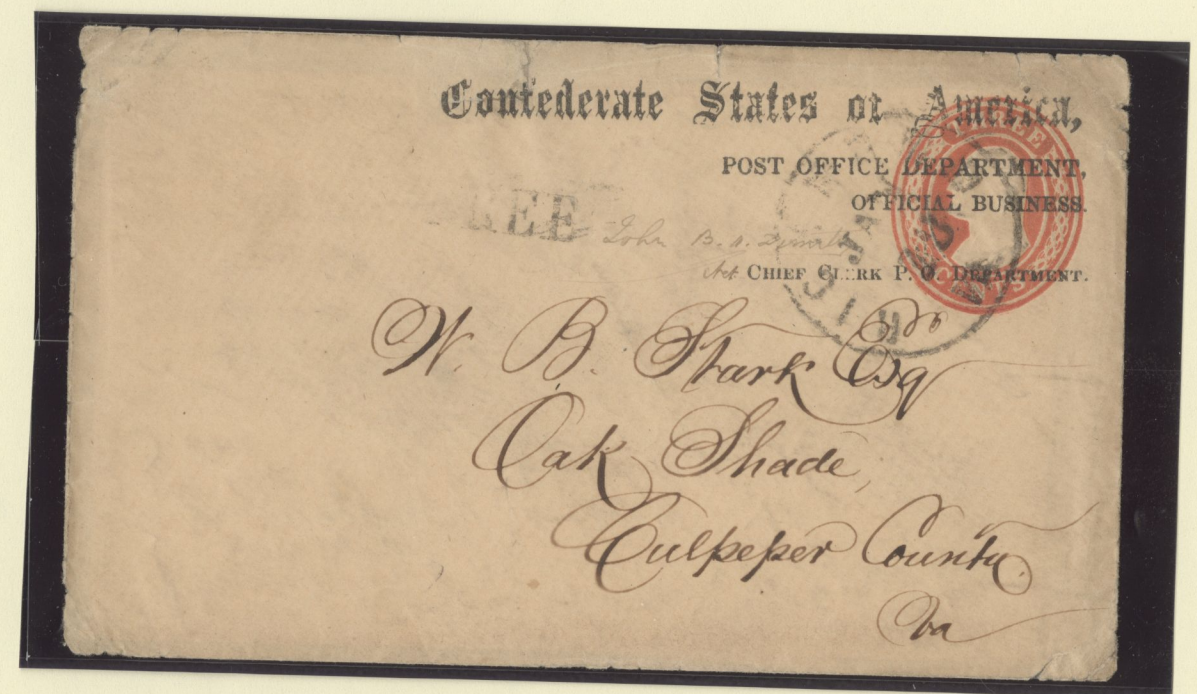 Confederate States of America,
POST OFFICE DEPARTMENT,
OFFICIAL BUSINESS.
FREE
John B.
Act CHIEF CLERK P. O. DEPARTMENT.
THREE
CENTS
JAN
W. B. Stark Esq
Oak Shade,
Culpeper County
Va